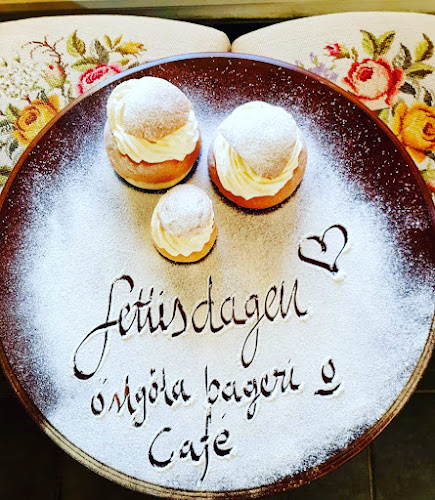 fettisdagen
ångöla bageri o
Café